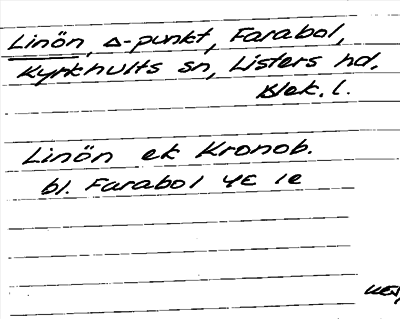 Linön, Δ-punkt, Farabol,
Kyrkhults sn, Listers hd,
Blek. l.
Linön ek Kronob.
bl. Farabol 4E 1e